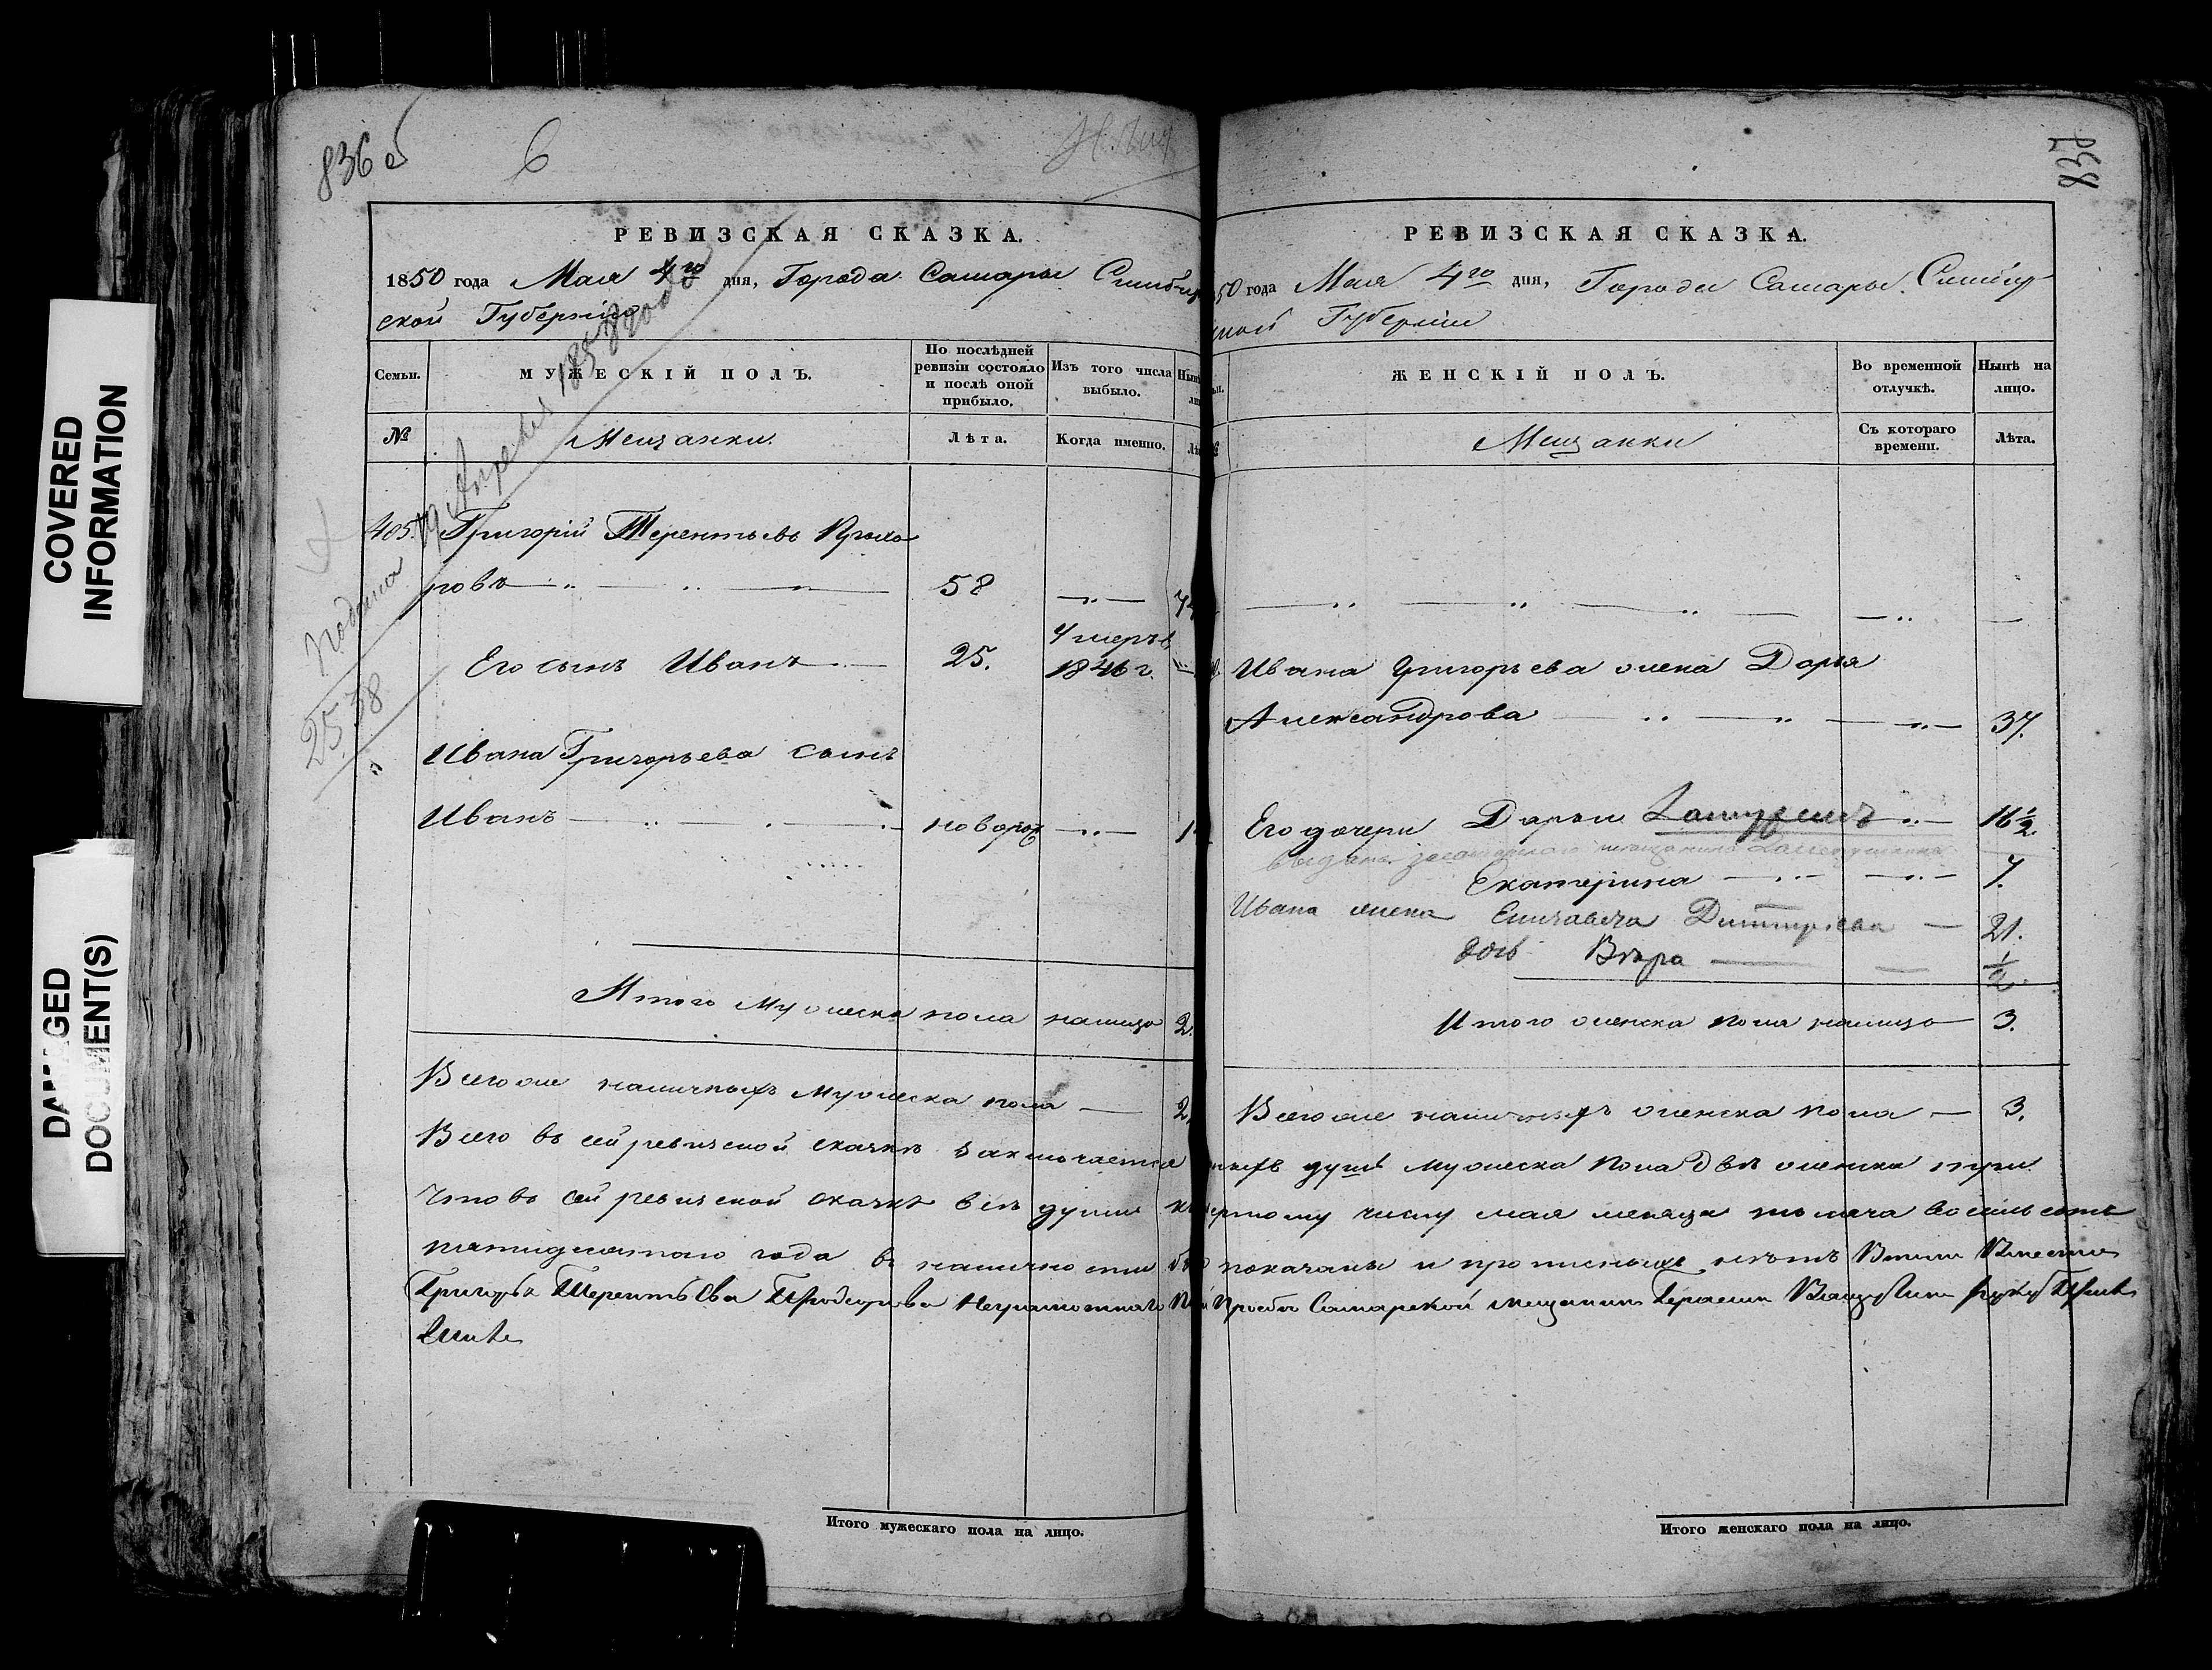 COVERED
INFORMATION
DAMAGED
DOCUMENT(S)
836 об
6
РЕВИЗСКАЯ СКАЗКА.
1850 года Мая 4го дня, Города Самары Симбир
ской Губерніи
Семьи.
МУЖЕСКІЙ ПОЛЪ.
По послѣдней
ревизіи состояло
и послѣ оной
прибыло.
Изъ того числа
выбыло.
№
Мещанки.
Лѣта.
Когда именно.
Подана 19 Апреля 1858 года
2538
405.
Григорій Терентьевъ
ровъ
58
Его сынъ Иванъ
25.
Умеръ въ
1846 г.
Ивана Григорьева сынъ
Иванъ
новорож
Итого мужеска пола налицо 2.
Всего же наличныхъ мужеска пола 2.
Всего въ сей ревизской сказкѣ заключается
Что въ сей ревизской сказкѣ всѣ души къ
пятидесятаго года въ наличности
Григорья Терентьева Неграмотнаго
837
РЕВИЗСКАЯ СКАЗКА.
50 года Мая 4го дня, Города Самары Симбир
ской Губерніи
ЖЕНСКІЙ ПОЛЪ.
Во временной
отлучкѣ.
Нынѣ на
лицо.
Мещанки
Съ котораго
времени.
Лѣта.
Ивана Григорьева жена Дарья
Александрова
37.
Его дочери Дарья
16 1/2.
выдана
Екатерина
7.
Ивана жена Елизавета Дмитріева
21.
дочь Вѣра
1/2
Итого женска пола налицо 3.
Всего же наличныхъ женска пола 3.
ныхъ душъ мужеска пола двѣ женска три
вертому числу мая месяца тысяча восемьсотъ
показаны и прописныхъ нѣтъ Вместо
прозбе Самарской мещанинъ Герасим руку
Итого мужескаго пола на лицо.
Итого женскаго пола на лицо.